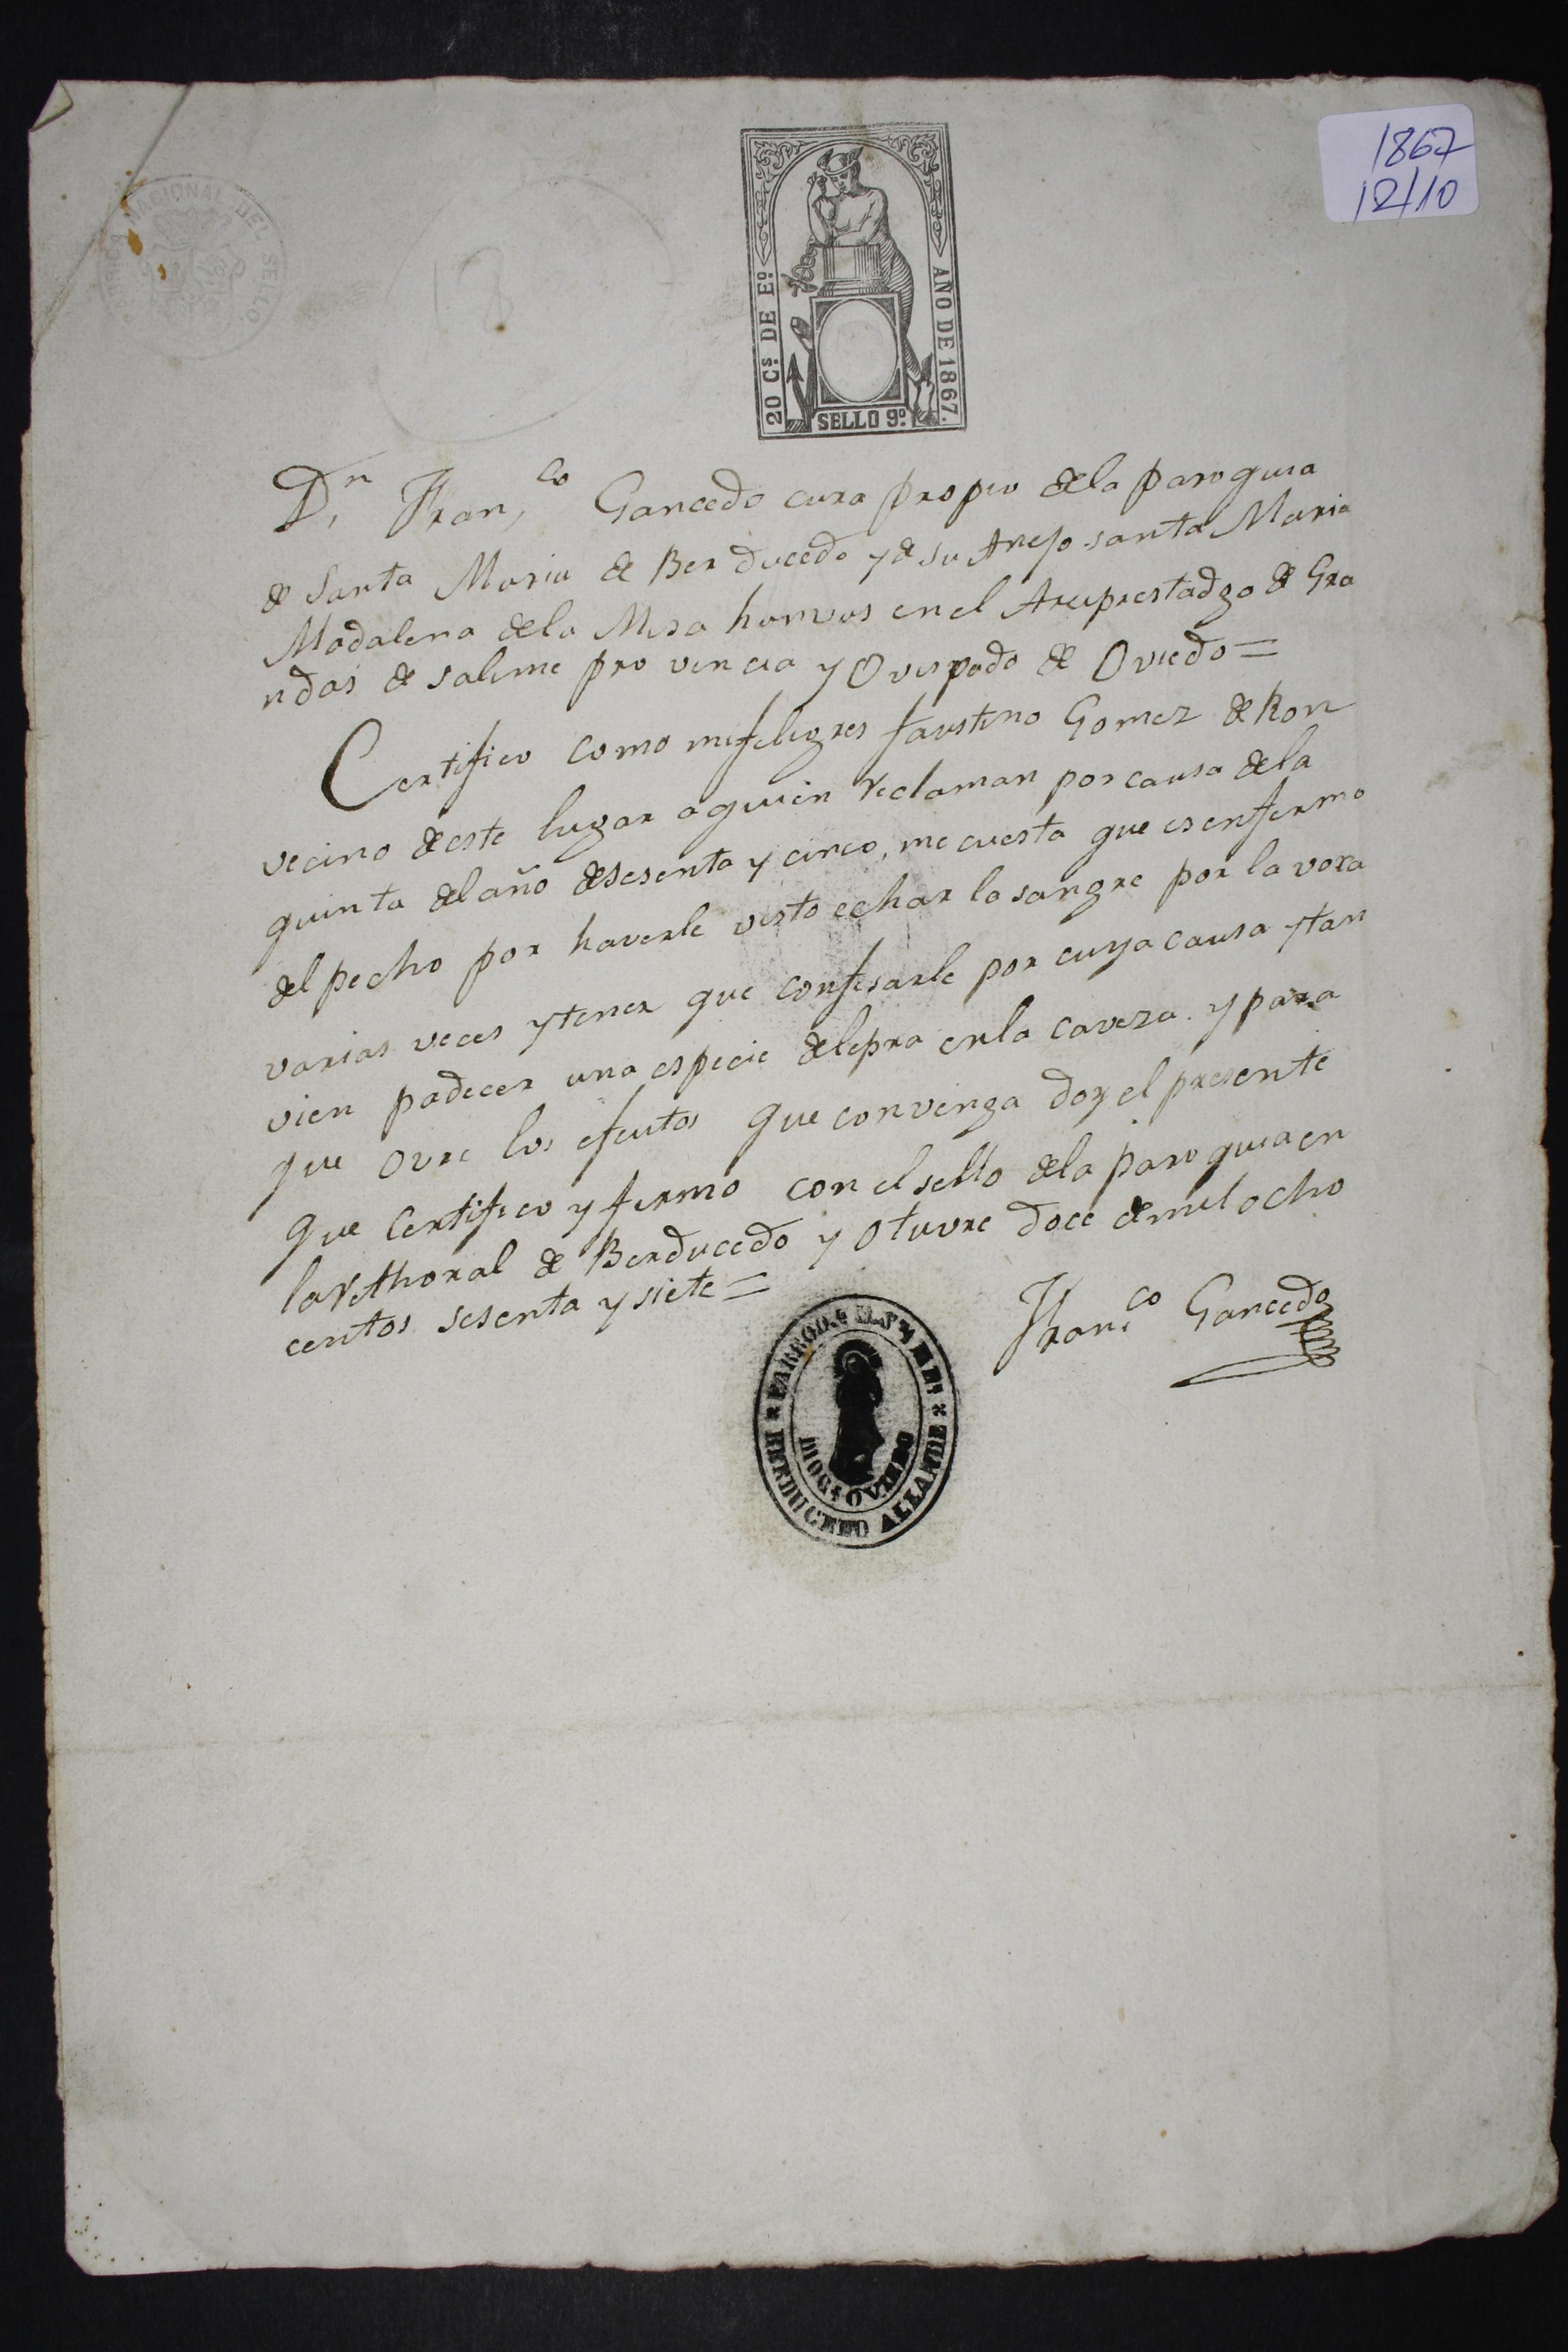 1867
12/10
NACIONAL DEL SELLO
18
20 Cs. DE Eº.
AÑO DE 1867.
SELLO 9º.
Dn. Franco Gancedo cura propio dela paroquia
de Santa Maria de Berducedo y de su Anejo santa Maria
Madalena dela Mesa hamvas en el Areiprestadgo de Gra
ndas de salime pro vincia y Ovispado de Oviedo=
Certifico como mifeligres faustino Gomez de Ron
vecino deeste lugar aquien reclaman por causa dela
quinta delaño desesenta y cinco, me cuesta que esenfermo
del pecho por haverle visto echar la sangre por la voxa
varias veces ytener que confesarle por cuya causa ytan
vien padecer una especie delepra enla caveza. y para
que ovre los efeutos que convenga doy el presente
que Certifico y firmo con elsello dela paroquia en
laRethoral de Berducedo y Otuvre doce demil ocho
cientos sesenta y siete=
Franco Gancedo
PARROQ.A D.STA MRA
BERDUCEDO ALLANDE
DIOCS OVIEDO